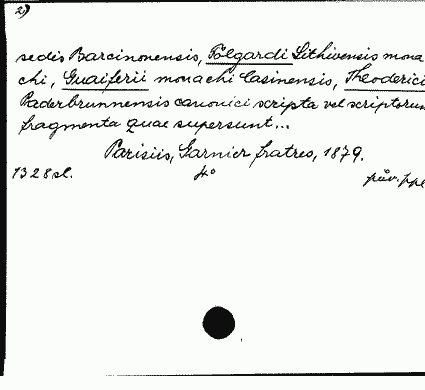 2)
sedis Barcinonensis, Folgardi Sithivensis mona
chi, Guaiferii monachi Casinensis, Theoderici
Paderbrunnensis canonici scripta vel scriptorum
fragmenta quae supersunt...
Parisiis, Garnier fratres, 1879.
1328 sl. 4°